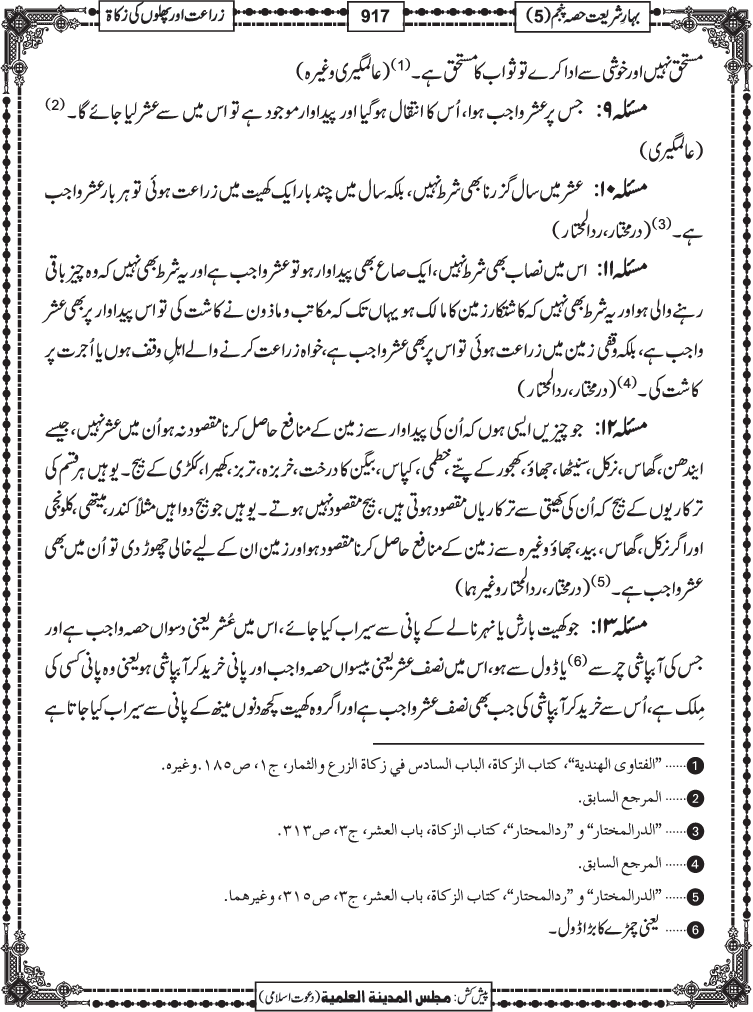 بہارِ شریعت حصہ پنجم (5)
917
زراعت اور پھلوں کی زکاۃ
مستحق نہیں اور خوشی سے ادا کرے تو ثواب کا مستحق ہے۔(1) (عالمگیری وغیرہ)
مسئلہ ۹: جس پر عشر واجب ہوا، اُس کا انتقال ہوگیا اور پیداوار موجود ہے تو اس میں سے عشر لیا جائے گا۔(2)
(عالمگیری)
مسئلہ ۱۰: عشر میں سال گزرنا بھی شرط نہیں، بلکہ سال میں چند بار ایک کھیت میں زراعت ہوئی تو ہر بار عشر واجب
ہے۔(3) (درمختار، ردالمحتار)
مسئلہ ۱۱: اس میں نصاب بھی شرط نہیں، ایک صاع بھی پیداوار ہو تو عشر واجب ہے اور یہ شرط بھی نہیں کہ وہ چیز باقی
رہنے والی ہو اور یہ شرط بھی نہیں کہ کاشتکار زمین کا مالک ہو یہاں تک کہ مکاتب و ماذون نے کاشت کی تو اس پیداوار پر بھی عشر
واجب ہے، بلکہ وقفی زمین میں زراعت ہوئی تو اس پر بھی عشر واجب ہے، خواہ زراعت کرنے والے اہلِ وقف ہوں یا اُجرت پر
کاشت کی۔(4) (درمختار، ردالمحتار)
مسئلہ ۱۲: جو چیزیں ایسی ہوں کہ اُن کی پیداوار سے زمین کے منافع حاصل کرنا مقصود نہ ہو اُن میں عشر نہیں، جیسے
ایندھن، گھاس، نرکل، سنیٹھا، جھاؤ، کھجور کے پتّے، خطمی، کپاس، بیگن کا درخت، خربزہ، تربز، کھیرا، ککڑی کے بیج۔ یوہیں ہر قسم کی
ترکاریوں کے بیج کہ اُن کی کھیتی سے ترکاریاں مقصود ہوتی ہیں، بیج مقصود نہیں ہوتے۔ یوہیں جو بیج دوا ہیں مثلاً کندر، میتھی، کلونجی
اور اگر نرکل، گھاس، بید، جھاؤ وغیرہ سے زمین کے منافع حاصل کرنا مقصود ہو اور زمین ان کے لیے خالی چھوڑ دی تو اُن میں بھی
عشر واجب ہے۔(5) (درمختار، ردالمحتار وغیرہما)
مسئلہ ۱۳: جو کھیت بارش یا نہر نالے کے پانی سے سیراب کیا جائے، اس میں عُشر یعنی دسواں حصہ واجب ہے اور
جس کی آبپاشی چرسے(6) یا ڈول سے ہو، اس میں نصف عشر یعنی بیسواں حصہ واجب اور پانی خرید کر آبپاشی ہو یعنی وہ پانی کسی کی
مِلک ہے، اُس سے خرید کر آبپاشی کی جب بھی نصف عشر واجب ہے اور اگر وہ کھیت کچھ دنوں مینھ کے پانی سے سیراب کیا جاتا ہے
1 ...... "الفتاوی الهندیة"، کتاب الزکاة، الباب السادس في زکاة الزرع والثمار، ج۱، ص۱۸۵. وغیره.
2 ...... المرجع السابق.
3 ...... "الدرالمختار" و "ردالمحتار"، کتاب الزکاة، باب العشر، ج۳، ص۳۱۳.
4 ...... المرجع السابق.
5 ...... "الدرالمختار" و "ردالمحتار"، کتاب الزکاة، باب العشر، ج۳، ص۳۱۵، وغیرهما.
6 ...... یعنی چمڑے کا بڑا ڈول۔
پیش کش: مجلس المدینة العلمیة (دعوت اسلامی)